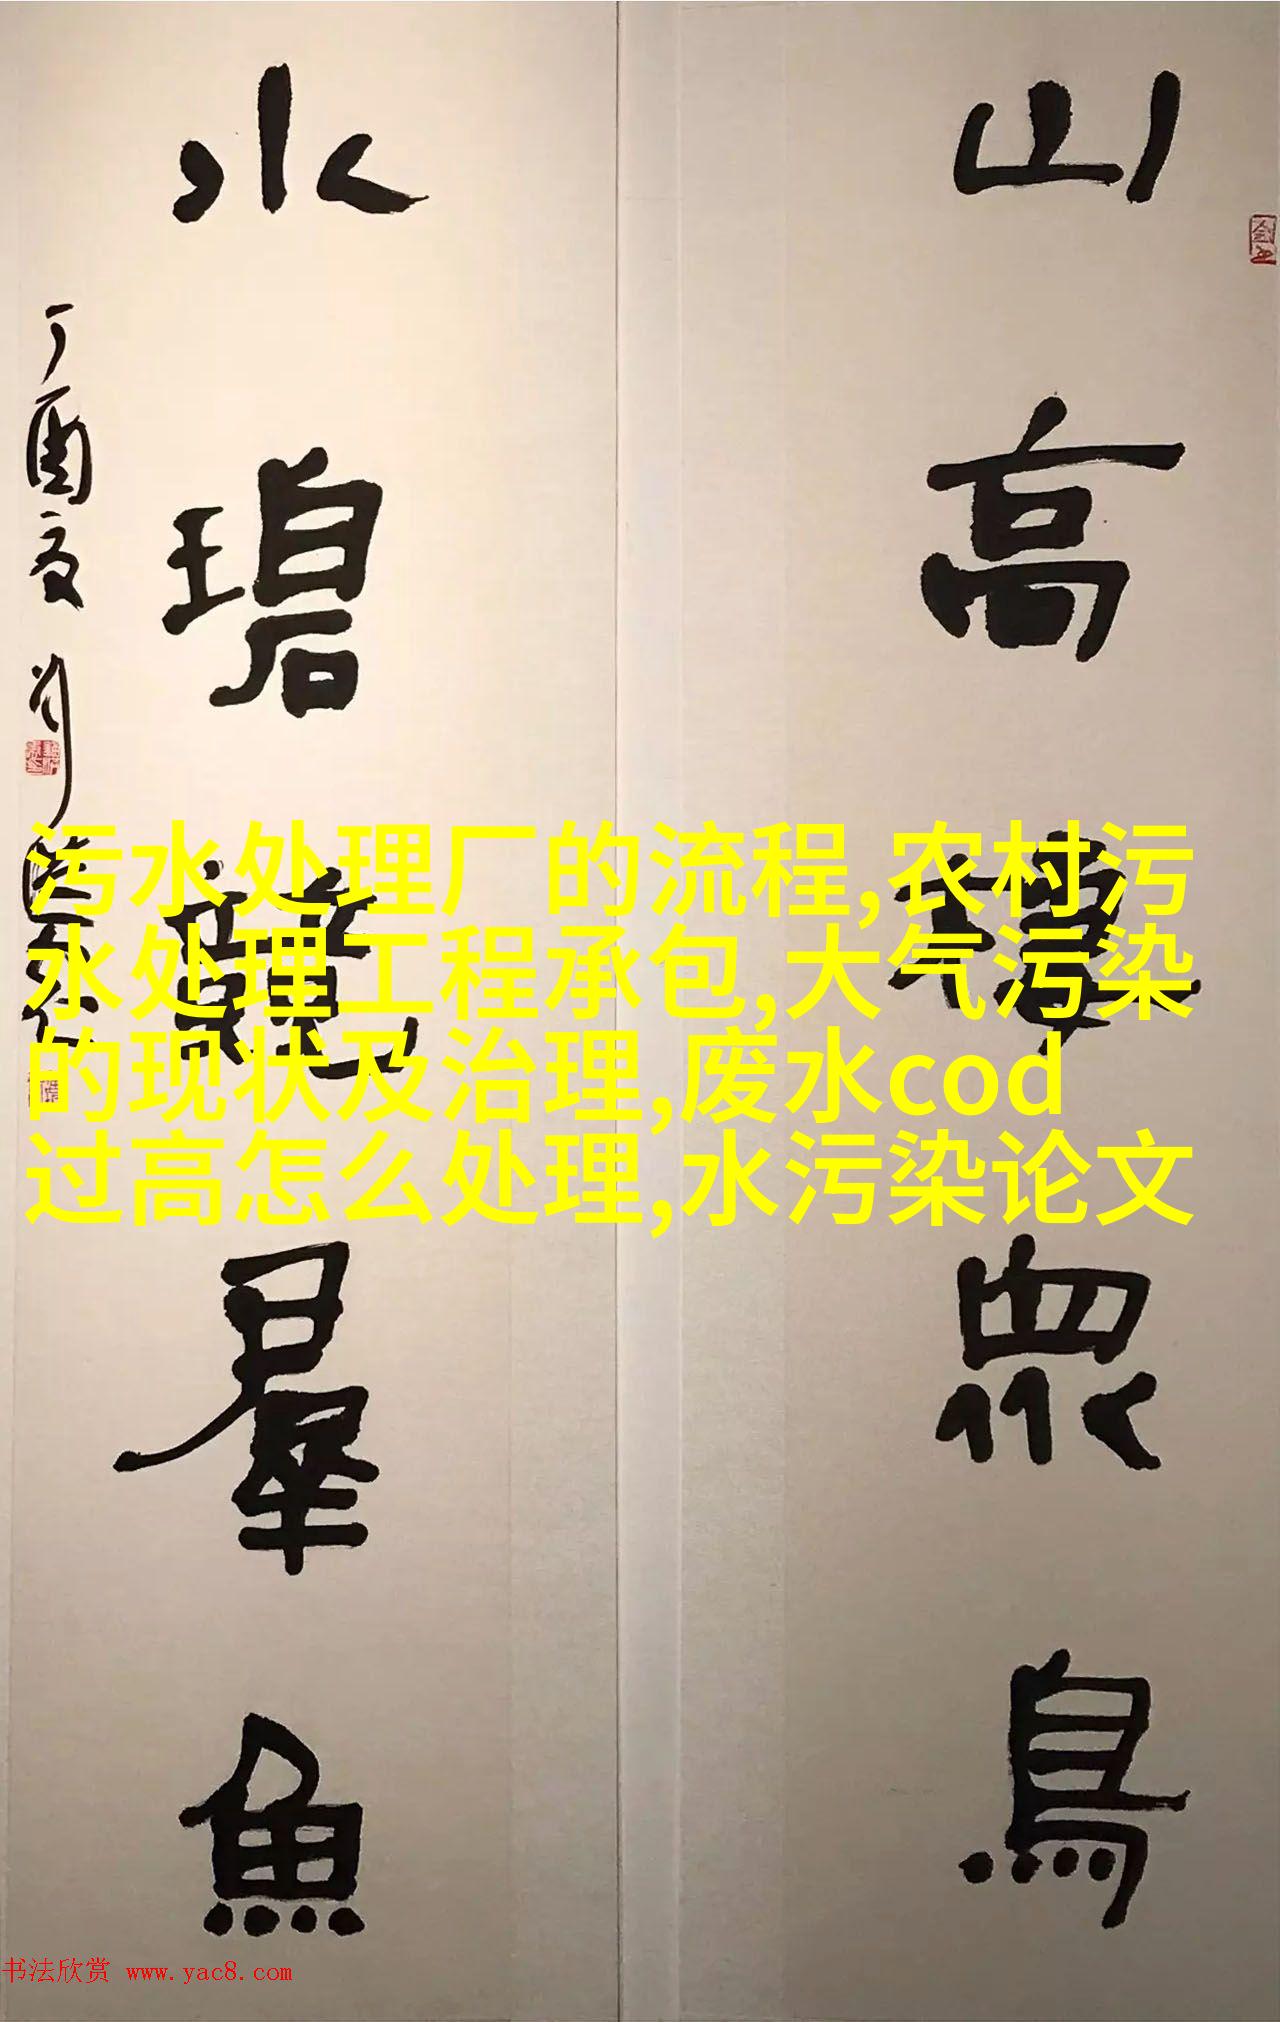 山高
眾鳥
水碧
羣魚
丁酉夏
污水处理厂的流程,农村污
水处理工程承包,大气污染
的现状及治理,废水cod
过高怎么处理,水污染论文
书法欣赏 www.yac8.com